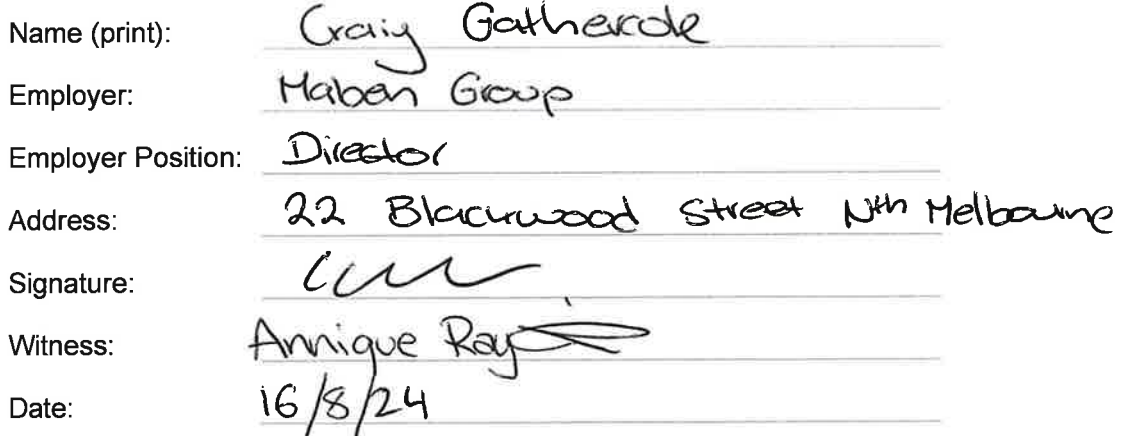 Name (print): Craig Gathercole
Employer: Maben Group
Employer Position: Director
Address: 22 Blackwood Street Nth Melbourne
Signature:
Witness: Annique Ray
Date: 16/8/24